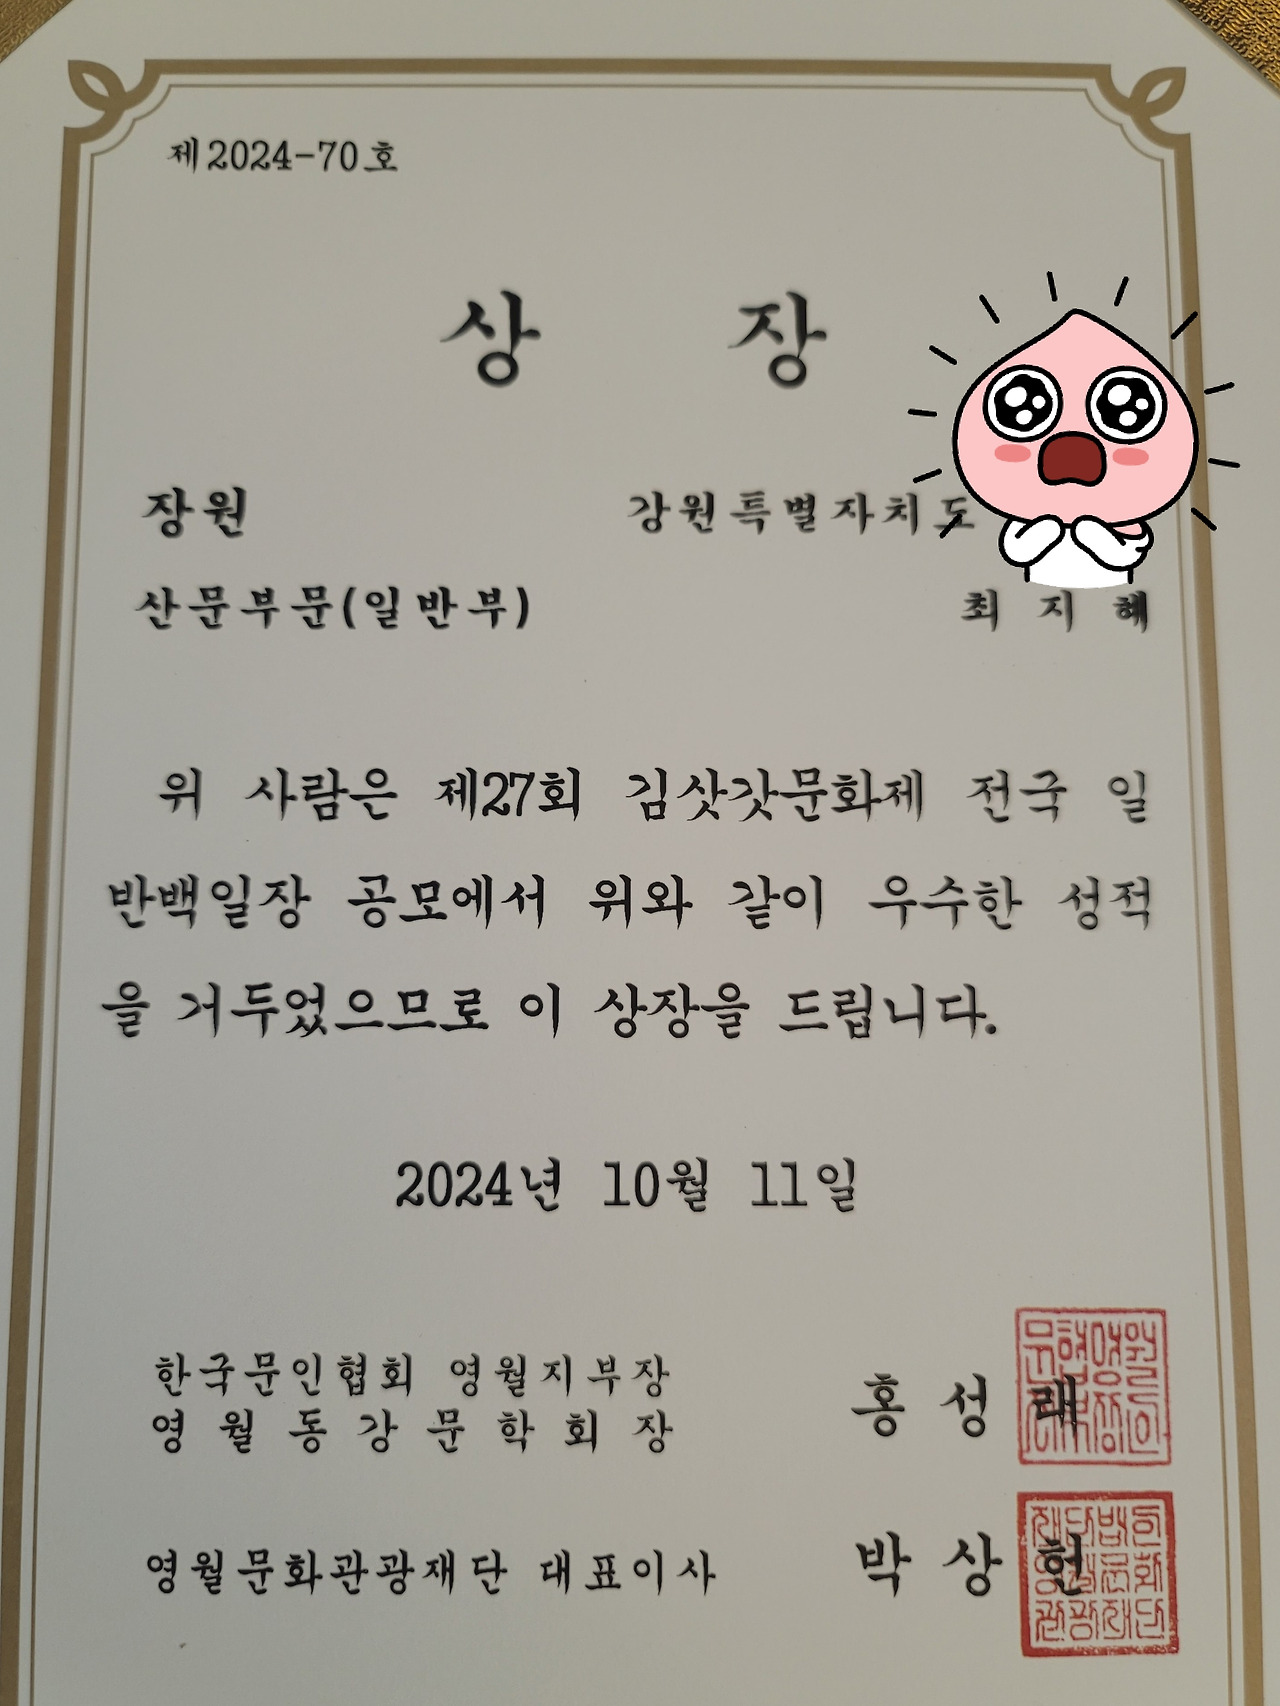 제2024-70호
상 장
장원 강원특별자치도
산문부문(일반부) 최 지 혜
위 사람은 제27회 김삿갓문화제 전국 일
반백일장 공모에서 위와 같이 우수한 성적
을 거두었으므로 이 상장을 드립니다.
2024년 10월 11일
한국문인협회 영월지부장
영 월 동 강 문 학 회 장 홍 성 래
영월문화관광재단 대표이사 박 상 헌